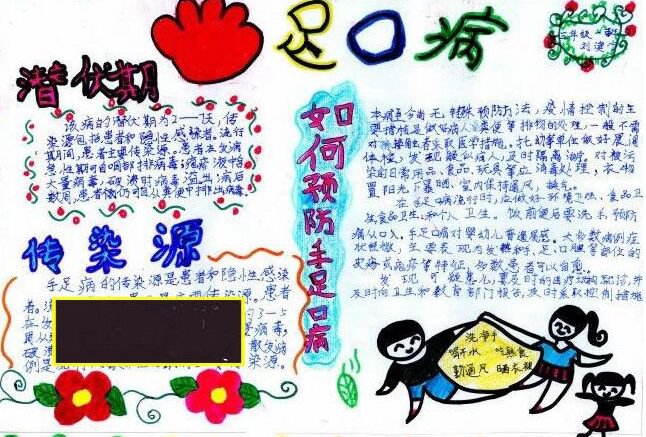 足口病
三年级
潜伏期
该病的潜伏期为2—7天，传
染源包括患者和隐性感染者。流行
期间，患者主要传染源。患者在发病
大量病毒，破溃时病毒溢出；病后
数周，患者仍可自从粪便中排出病毒。
传染源
手足病的传染源是患者和隐性感染
者。
3—5
病毒，
散发病
染源。
如何预防手足口病
本病至今尚无特殊预防方法，疫情控制的主
要措施是做好病人粪便等排物的处理，一般不需
对接触者采取医学措施。托幼单位做好晨间
体检，发现疑似病人，及时隔离治疗。对被污
染的日常用品、食品、玩具等应消毒处理，衣物
置阳光下暴晒，室内保持通风，换气。
在手足口病流行时，应做好环境卫生、食品卫
生和个人卫生。饭前便后要洗手，预防
病从口入。手足口病对婴幼儿普遍易感。大多数病例症
状轻微，主要表现为发热和手、足、口腔等部位的
皮疹或疱疹等特征，多数患者可以自愈。
发现可疑患儿，要及时到医疗机构就诊，并
及时向卫生和教育部门报告，及时采取控制措施
洗净手
喝开水 吃熟食
勤通风 晒衣被